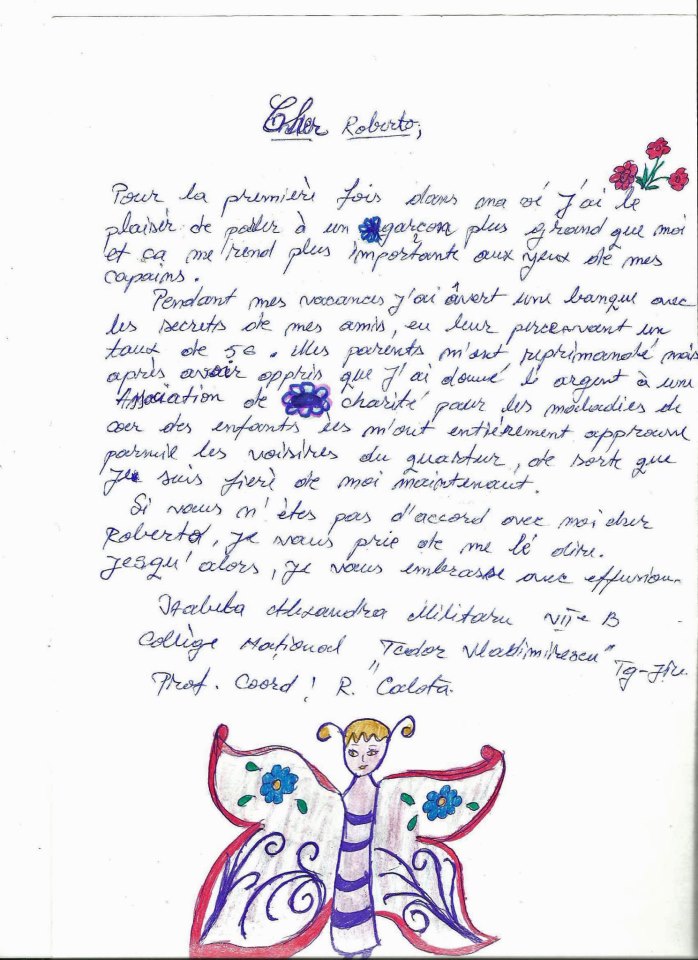 Cher Roberto,
Pour la premierè fois dans ma vé j'ai le
plaisir de paler à un garcon plus grand que moi
et ça me rend plus importante aux yeux de mes
capains.
Pendant mes vacances j'ai âvert une banque avec
les secrets de mes amis, en leur percevant un
taux de 5€. Mes parents m'ont réprimandé mais
après avoir oppris que j'ai donné l'argent à une
Association de charité pour les maladies de
coer des enfants ils m'ont entièrement approuvé
parmie les voisires du quartier, de sorte que
je suis fierè de moi maintenant.
Si vous n'êtes pas d'accord avec moi cher
Roberto, je vous prie de me lé dire.
Jesqu'alors, je vous embrasse avec effusion.
Alexandra Militaru VII-e B
Collège Național "Tudor Vladimirescu" Tg-Jiu.
Prof. Coord: R. Calota.